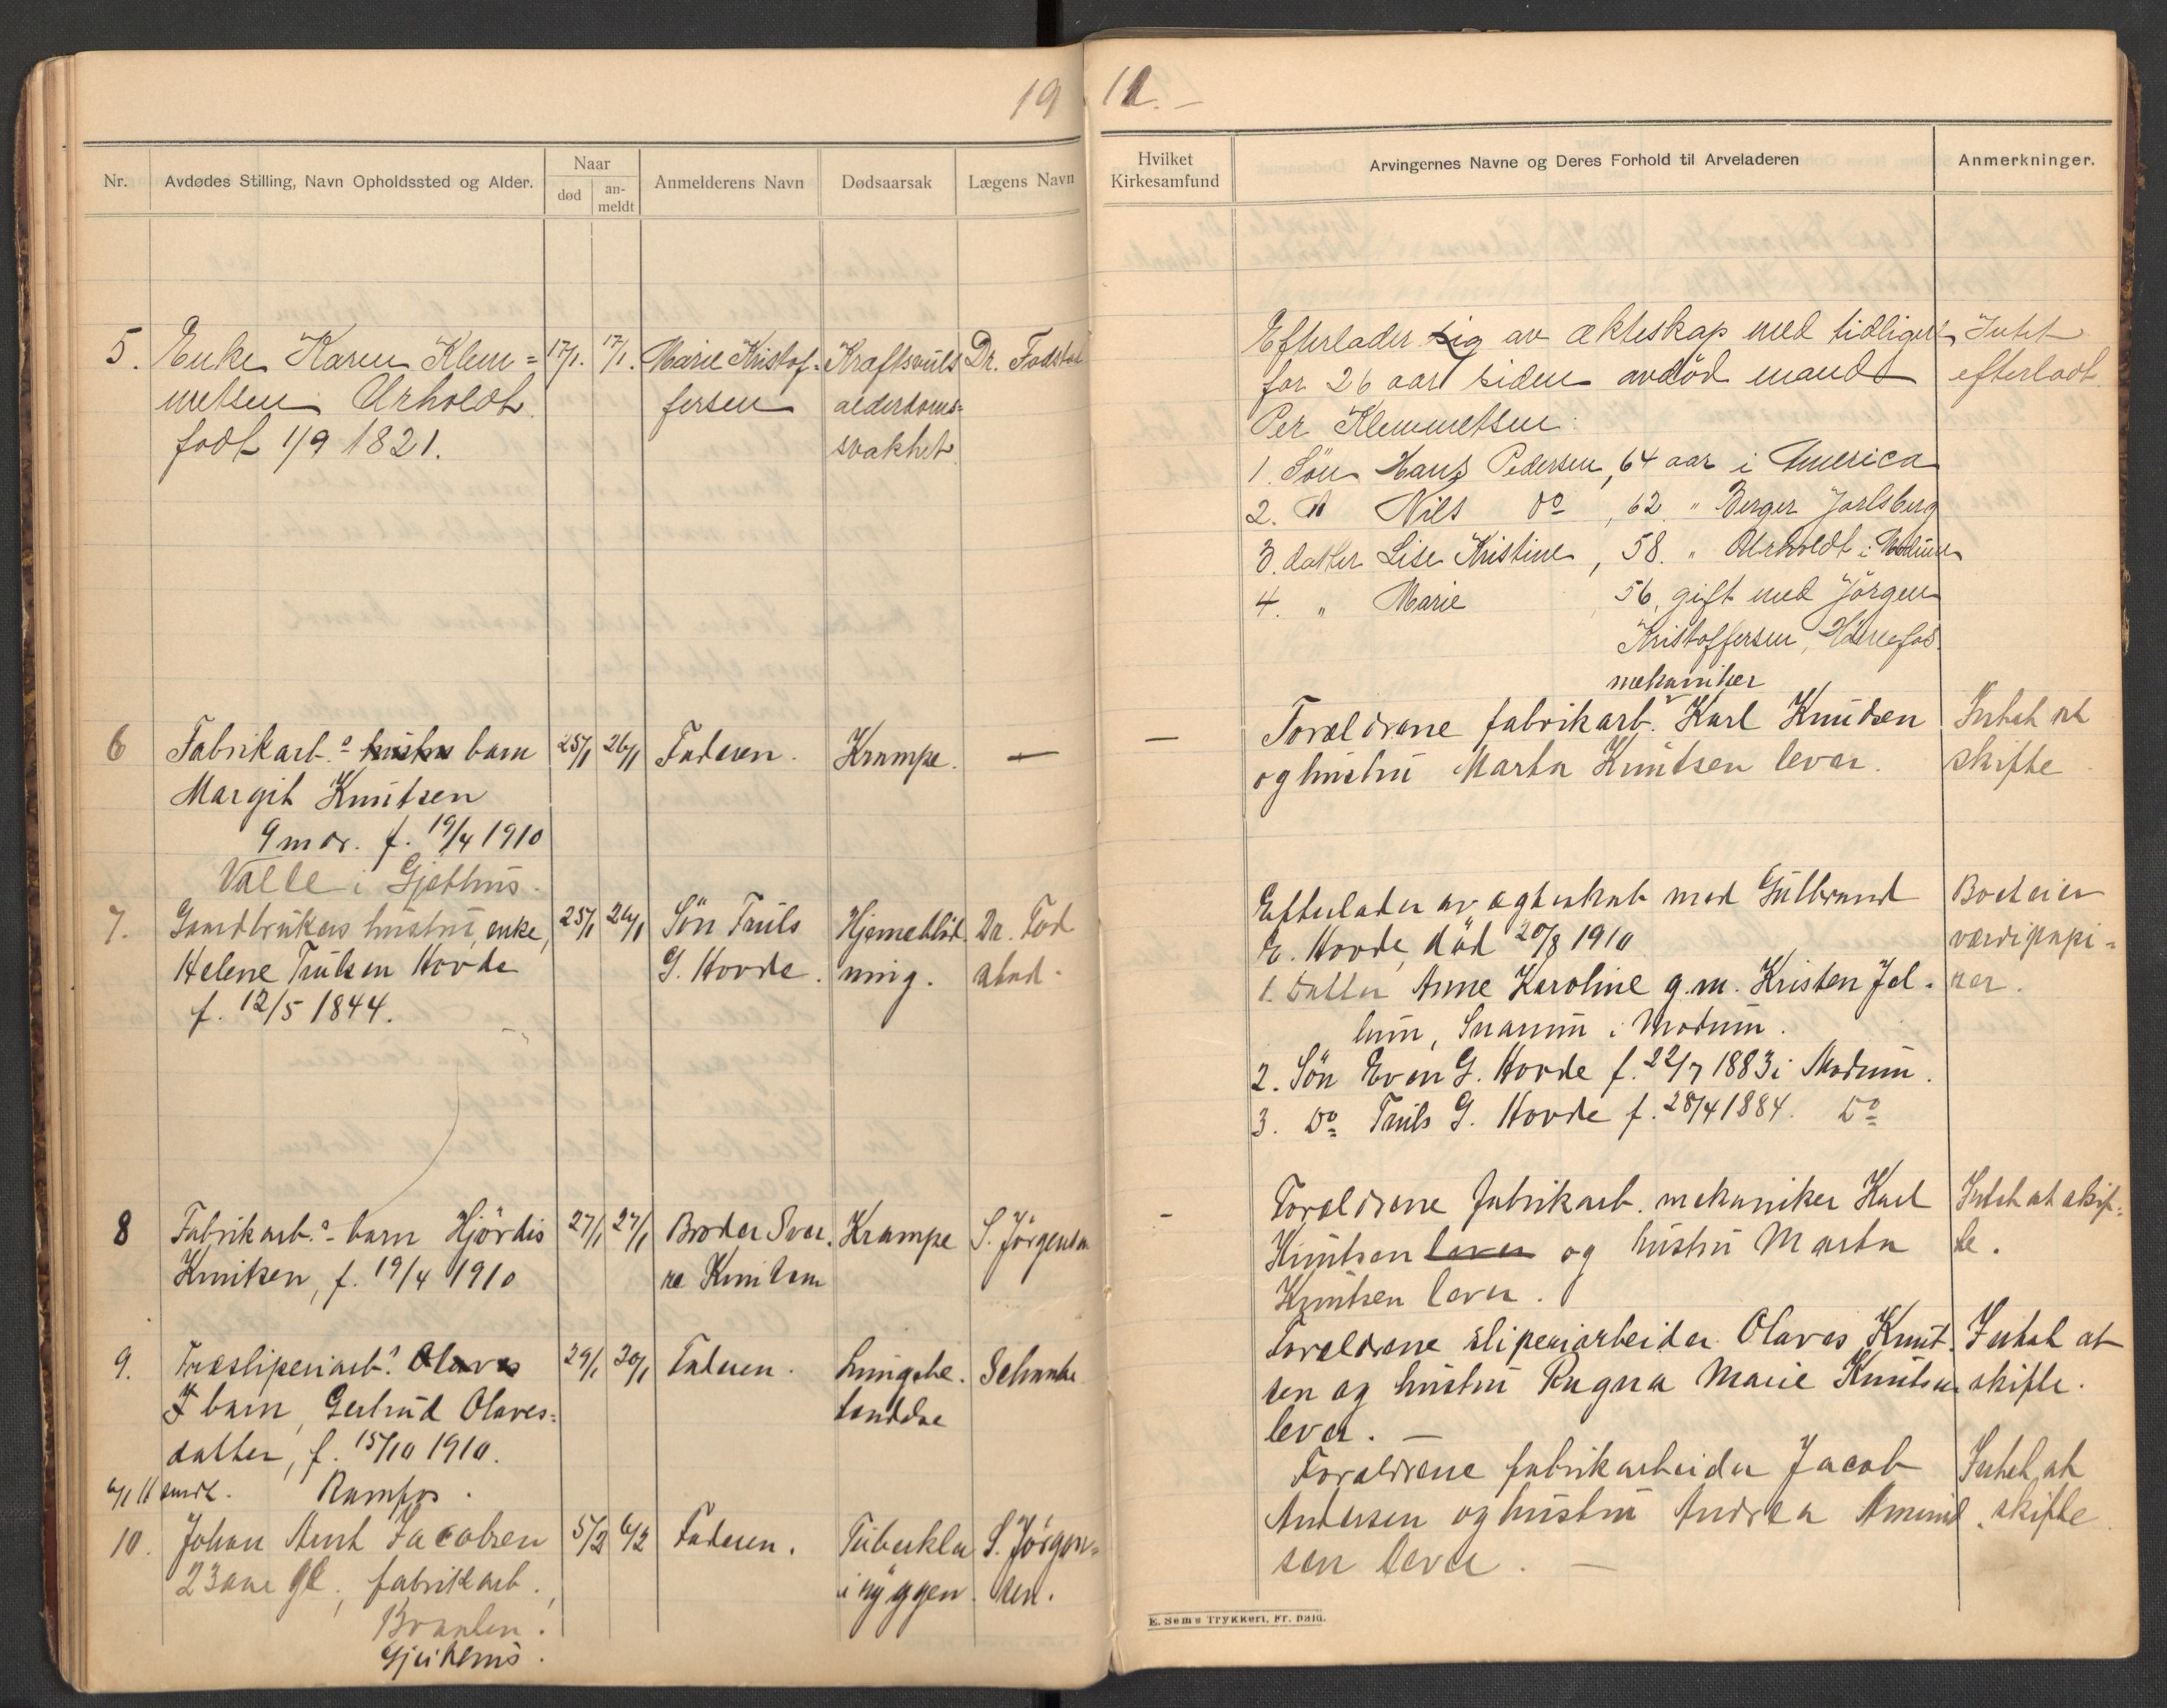 19 11.
Nr. Avdødes Stilling, Navn Opholdssted og Alder. Naar død an-meldt Anmelderens Navn Dødsaarsak Lægens Navn
Hvilket Kirkesamfund Arvingernes Navne og Deres Forhold til Arveladeren Anmerkninger.
5. Enke Karen Klem= 17/1. 17/1. Marie Kristof- Kraftsvuls Dr. Fodstad
metsen Urholdt fersen alderdoms=
født 1/9 1821. svakhet
Efterlader sig av ekteskap med tidligere Intet
for 26 aar siden avdød mand efterladt
Per Klemmetsen:
1. Søn Hans Pedersen, 64 aar i America
2. " Nils do, 62 " Berger Jarlsberg
3. datter Lise Kristine, 58. " Urholdt i Modum
4. " Marie 56, gift med Jörgen
Kristoffersen,
6 Fabrikarb.s hustru barn 25/1 26/1 Faderen. Krampe. —
Margit Knutsen
9 mdr. f. 19/4 1910
Valle i Gjethus.
mekaniker
— Forældrene fabrikarb. Karl Knudsen Intet at
og hustru Marta Knutsen lever. skifte
7. Gaardbrukers hustru, enke, 25/1 26/1 Sön Truls Hjerneblöd Dr. Fod
Helene Trulsen Hovde G. Hovde. ning. stad.
f. 12/5 1844.
Efterlader av egteskab med Gulbrand Boet eier
E. Hovde, död 20/8 1910 værdipapi=
1. Datter Anne Karoline g.m. Kristen Jel- rer.
lum, Snarum i Modum.
2. Sön Even G. Hovde f. 22/7 1883 i Modum.
3. Do Truls G. Hovde f. 28/4 1884. Do
8 Fabrikarb.s barn Hjördis 27/1 27/1 Broder Sver- Krampe S. Jörgensen
Knutsen, f. 19/4 1910 re Knutsen
- Forældrene fabrikarb. mekaniker Karl Intet at skif=
Knutsen lever og hustru Marta te.
Knutsen lever.
9. Træsliperiarb.s Olaves 29/1 30/1 Faderen. Lungebe- Schanke
barn, Gertrud Olaves= tændelse
datter, f. 15/10 1910.
Ramfos.
Forældrene sliperiarbeider Olaves Knut- Intet at
sen og hustru Ragna Marie Knutsen skifte.
lever. —
6/1 11 smdt.
10. Johan Arnt Jacobsen 5/2 6/2 Faderen. Tuberkler S. Jörgen=
23 aar gl., fabrikarb., i ryggen. sen.
Braaten.
Gjeithus.
Forældrene fabrikarbeider Jacob Intet at
Andersen og hustru Andrea Amund- skifte
sen lever. —
E. Sems Trykkeri, Fr. hald.